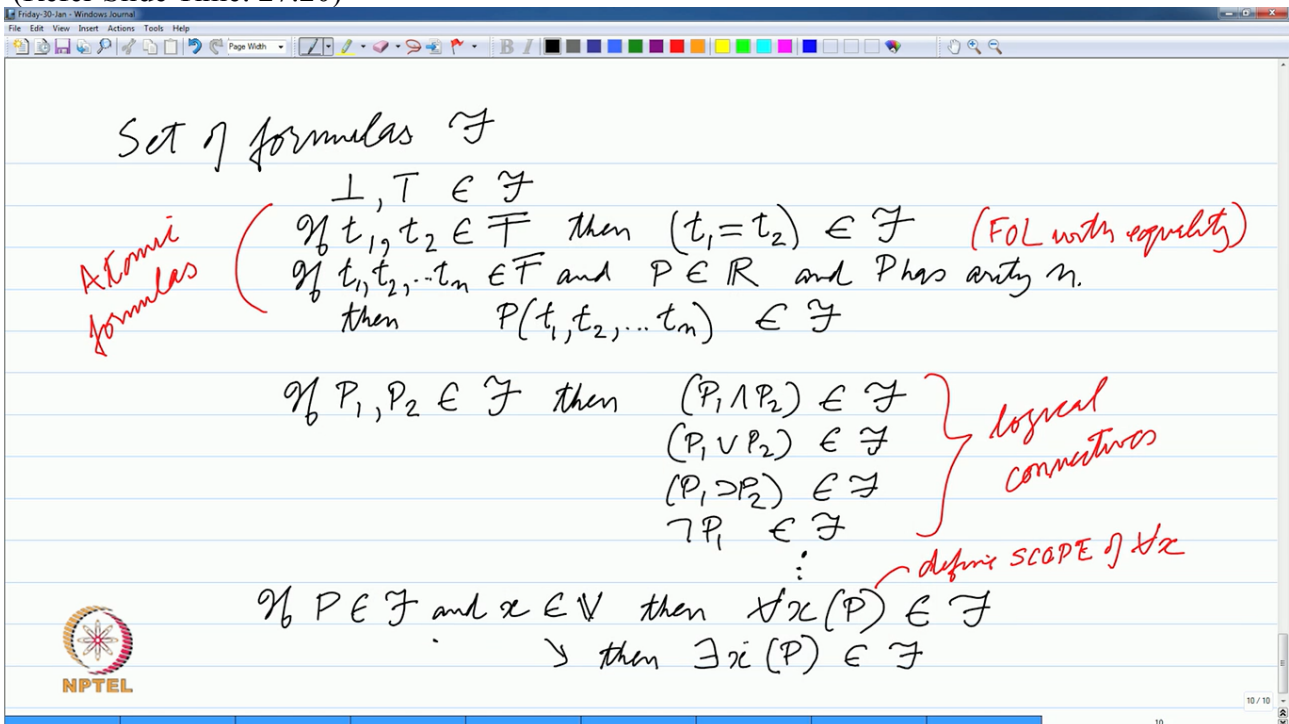 (Refer Slide Time: 27:20)
Friday-30-Jan - Windows Journal
File Edit View Insert Actions Tools Help
Page Width
B I
Set of formulas ℱ
⊥, T ∈ ℱ
Atomic formulas
If t₁, t₂ ∈ 𝕋 then (t₁ = t₂) ∈ ℱ (FOL with equality)
If t₁, t₂, ... tₙ ∈ 𝕋 and P ∈ ℝ and P has arity n.
then P(t₁, t₂, ... tₙ) ∈ ℱ
If P₁, P₂ ∈ ℱ then (P₁ ∧ P₂) ∈ ℱ
(P₁ ∨ P₂) ∈ ℱ
(P₁ ⊃ P₂) ∈ ℱ
¬P₁ ∈ ℱ
logical connectives
⋮
define SCOPE of ∀x
If P ∈ ℱ and x ∈ 𝕍 then ∀x (P) ∈ ℱ
↘ then ∃x (P) ∈ ℱ
NPTEL
10 / 10
10